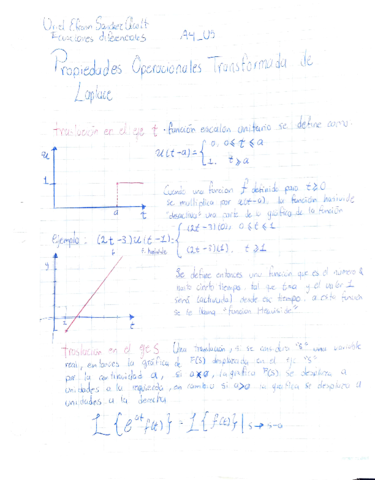 Uriel Efrain Sanchez
Ecuaciones diferenciales
A4_U3
Propiedades Operacionales Transformada de
Laplace
traslación en el eje t • función escalon unitario se define como
u
1
a
t
u(t-a) = { 0, 0≤t≤a
1, t≥a
Cuando una funcion f definida para t≥0
se multiplica por u(t-a), la función
una parte de la grafica de la función
Ejemplo: (2t-3)u(t-1) = { (2t-3)(0), 0≤t≤1
(2t-3)(1), t≥1
Se define entonces una función que es el numero
cierto tiempo tal que t=a y el valor 1
desde ese tiempo, a esta función
se le llama "función Heaviside"
traslacion en el eje S Una traslación, si se considera "S" una variable
real, entonces la gráfica de F(S) desplazada en el eje "S"
por la cantidad a, si la gráfica F(S) se desplaza a
unidades a la izquierda, en cambio si a>0 la grafica se desplaza a
unidades a la derecha
L {e^at f(t)} = L {f(t)} | s → s-a